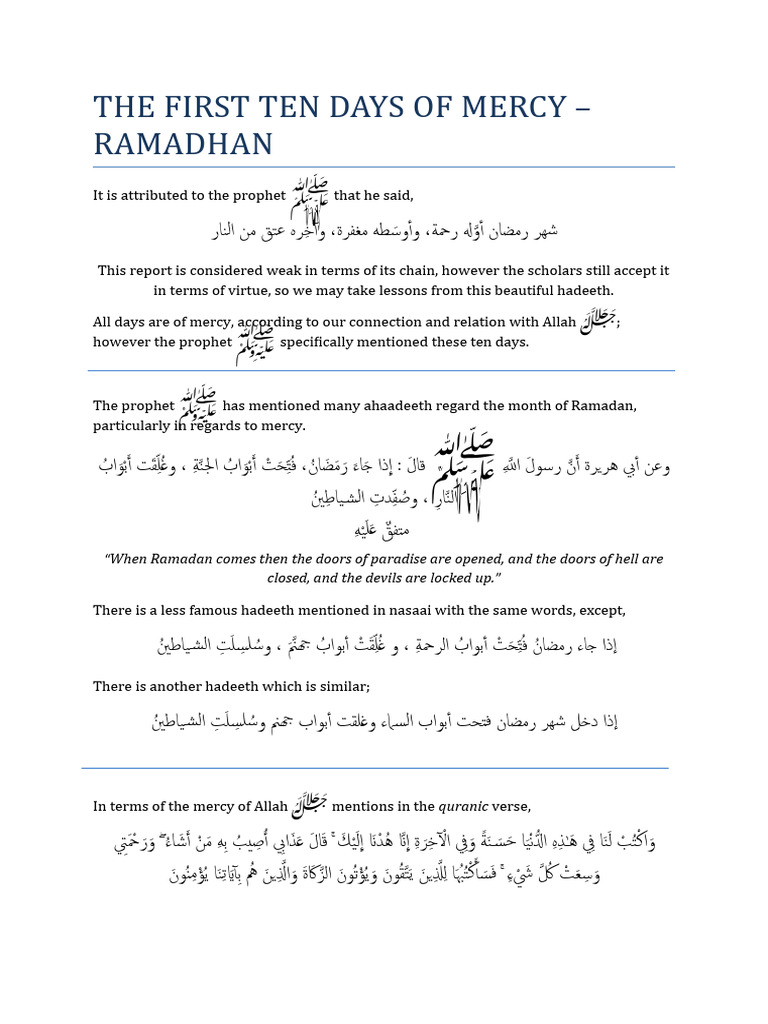 THE FIRST TEN DAYS OF MERCY –
RAMADHAN
It is attributed to the prophet ﷺ that he said,
شهر رمضان أوَّله رحمة، وأوسَطه مغفرة، وآخِره عتق من النار
This report is considered weak in terms of its chain, however the scholars still accept it
in terms of virtue, so we may take lessons from this beautiful hadeeth.
All days are of mercy, according to our connection and relation with Allah ﷻ;
however the prophet ﷺ specifically mentioned these ten days.
The prophet ﷺ has mentioned many ahaadeeth regard the month of Ramadan,
particularly in regards to mercy.
وعن أبي هريرة أَنَّ رسولَ اللَّهِ ﷺ قالَ : إذا جَاءَ رَمَضَانُ، فُتِّحَتْ أَبْوَابُ الجنَّةِ ، وغُلِّقَت أَبْوَابُ
النَّارِ ، وصُفِّدتِ الشياطِينُ
متفقٌ عَلَيْهِ
“When Ramadan comes then the doors of paradise are opened, and the doors of hell are
closed, and the devils are locked up.”
There is a less famous hadeeth mentioned in nasaai with the same words, except,
إذا جاء رمضانُ فُتِّحَتْ أبوابُ الرحمةِ ، و غُلِّقَتْ أبوابُ جهنَّمَ ، وسُلسِلَتِ الشياطينُ
There is another hadeeth which is similar;
إذا دخل شهر رمضان فتحت أبواب السماء وغلقت أبواب جهنم وسُلسِلَتِ الشياطينُ
In terms of the mercy of Allah ﷻ mentions in the quranic verse,
وَاكْتُبْ لَنَا فِي هَٰذِهِ الدُّنْيَا حَسَنَةً وَفِي الْآخِرَةِ إِنَّا هُدْنَا إِلَيْكَ ۚ قَالَ عَذَابِي أُصِيبُ بِهِ مَنْ أَشَاءُ ۖ وَرَحْمَتِي
وَسِعَتْ كُلَّ شَيْءٍ ۚ فَسَأَكْتُبُهَا لِلَّذِينَ يَتَّقُونَ وَيُؤْتُونَ الزَّكَاةَ وَالَّذِينَ هُم بِآيَاتِنَا يُؤْمِنُونَ